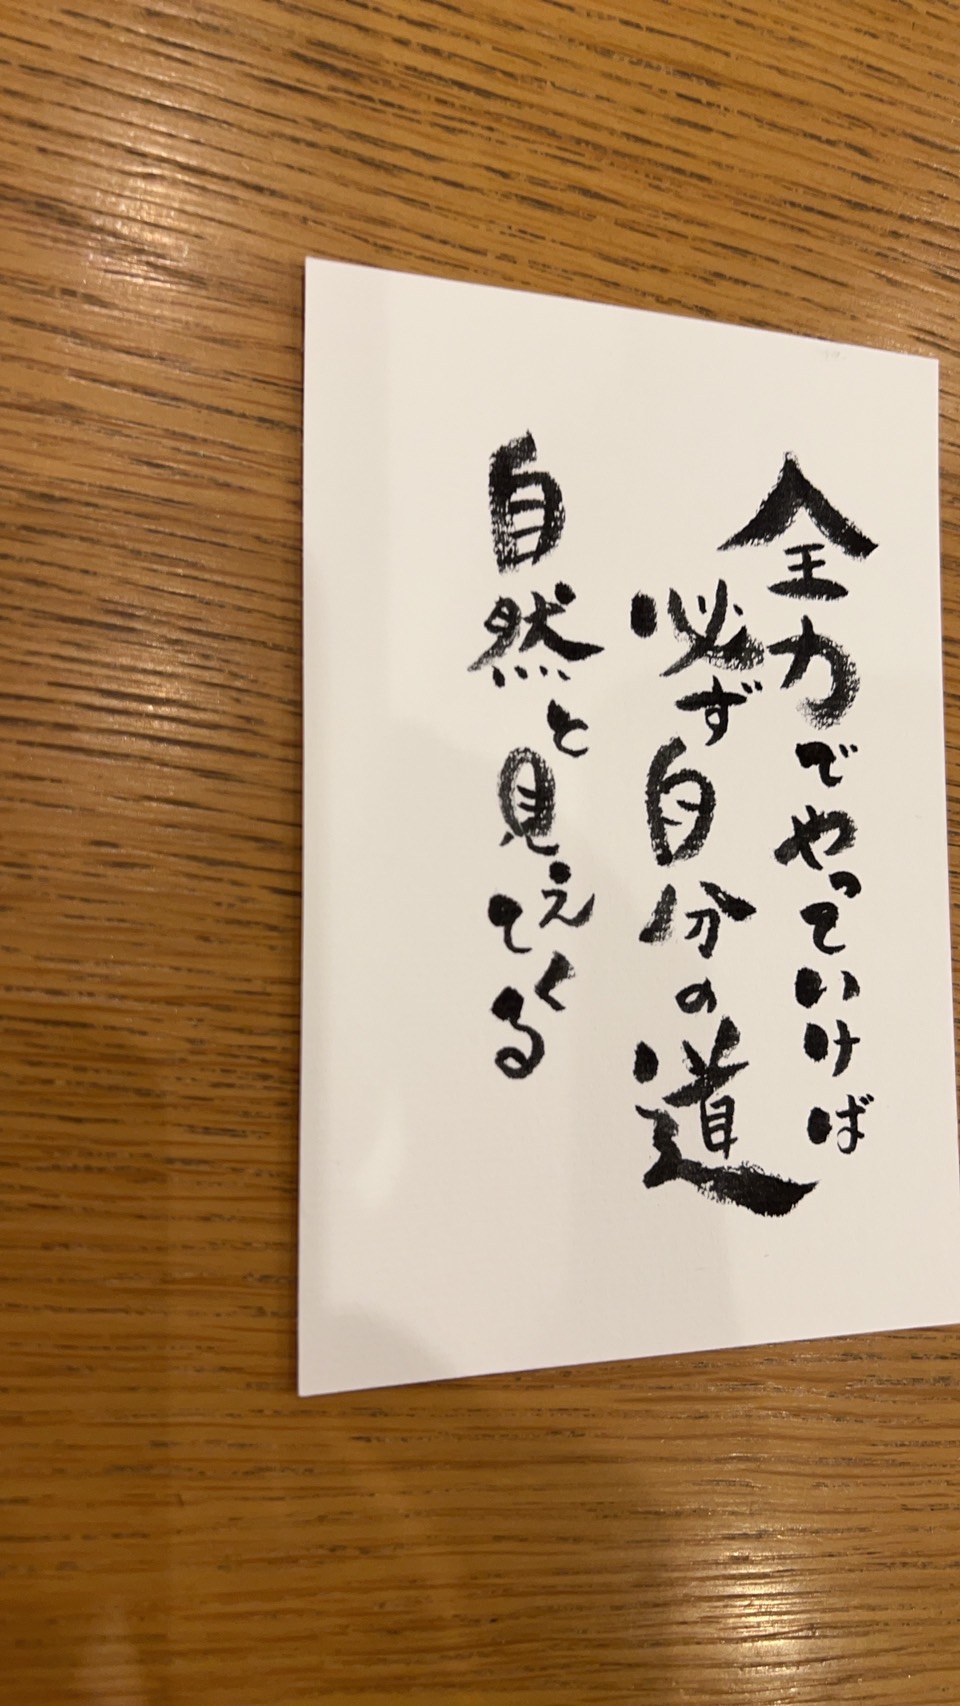 全力でやっていけば
必ず自分の道
自然と見えてくる